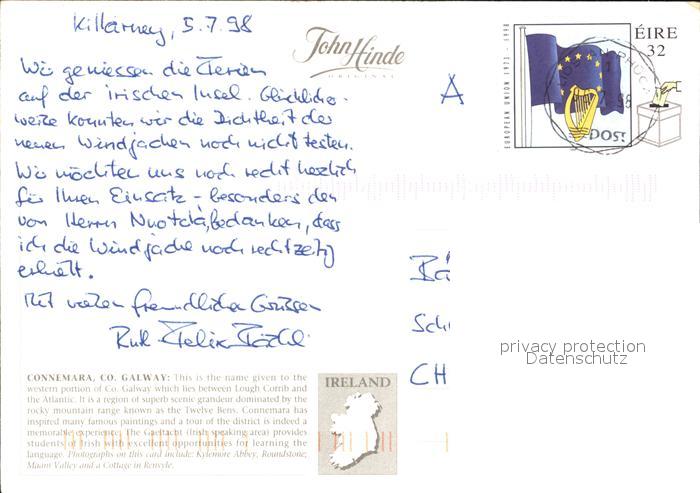 Killarney, 5.7.98
Wir geniessen die Ferien
auf der irischen Insel. Glücklicher-
weise konnten wir die Dichtheit der
neuen Windjacken noch nicht testen.
Wir möchten uns noch recht herzlich
für Ihren Einsatz – besonders den
von Herrn bedanken, dass
ich die Windjacke noch rechtzeitig
erhielt.
Mit vielen freundlichen Grüssen
Ruth Felix
John Hinde
ORIGINAL
A
EUROPEAN UNION 1973 - 1998
ÉIRE
32
POST
Sch
CH
privacy protection
Datenschutz
CONNEMARA, CO. GALWAY: This is the name given to the
western portion of Co. Galway which lies between Lough Corrib and
the Atlantic. It is a region of superb scenic grandeur dominated by the
rocky mountain range known as the Twelve Bens. Connemara has
inspired many famous paintings and a tour of the district is indeed a
memorable experience. The Gaeltacht (Irish speaking area) provides
students of Irish with excellent opportunities for learning the
language. Photographs on this card include: Kylemore Abbey, Roundstone,
Maam Valley and a Cottage in Renvyle.
IRELAND